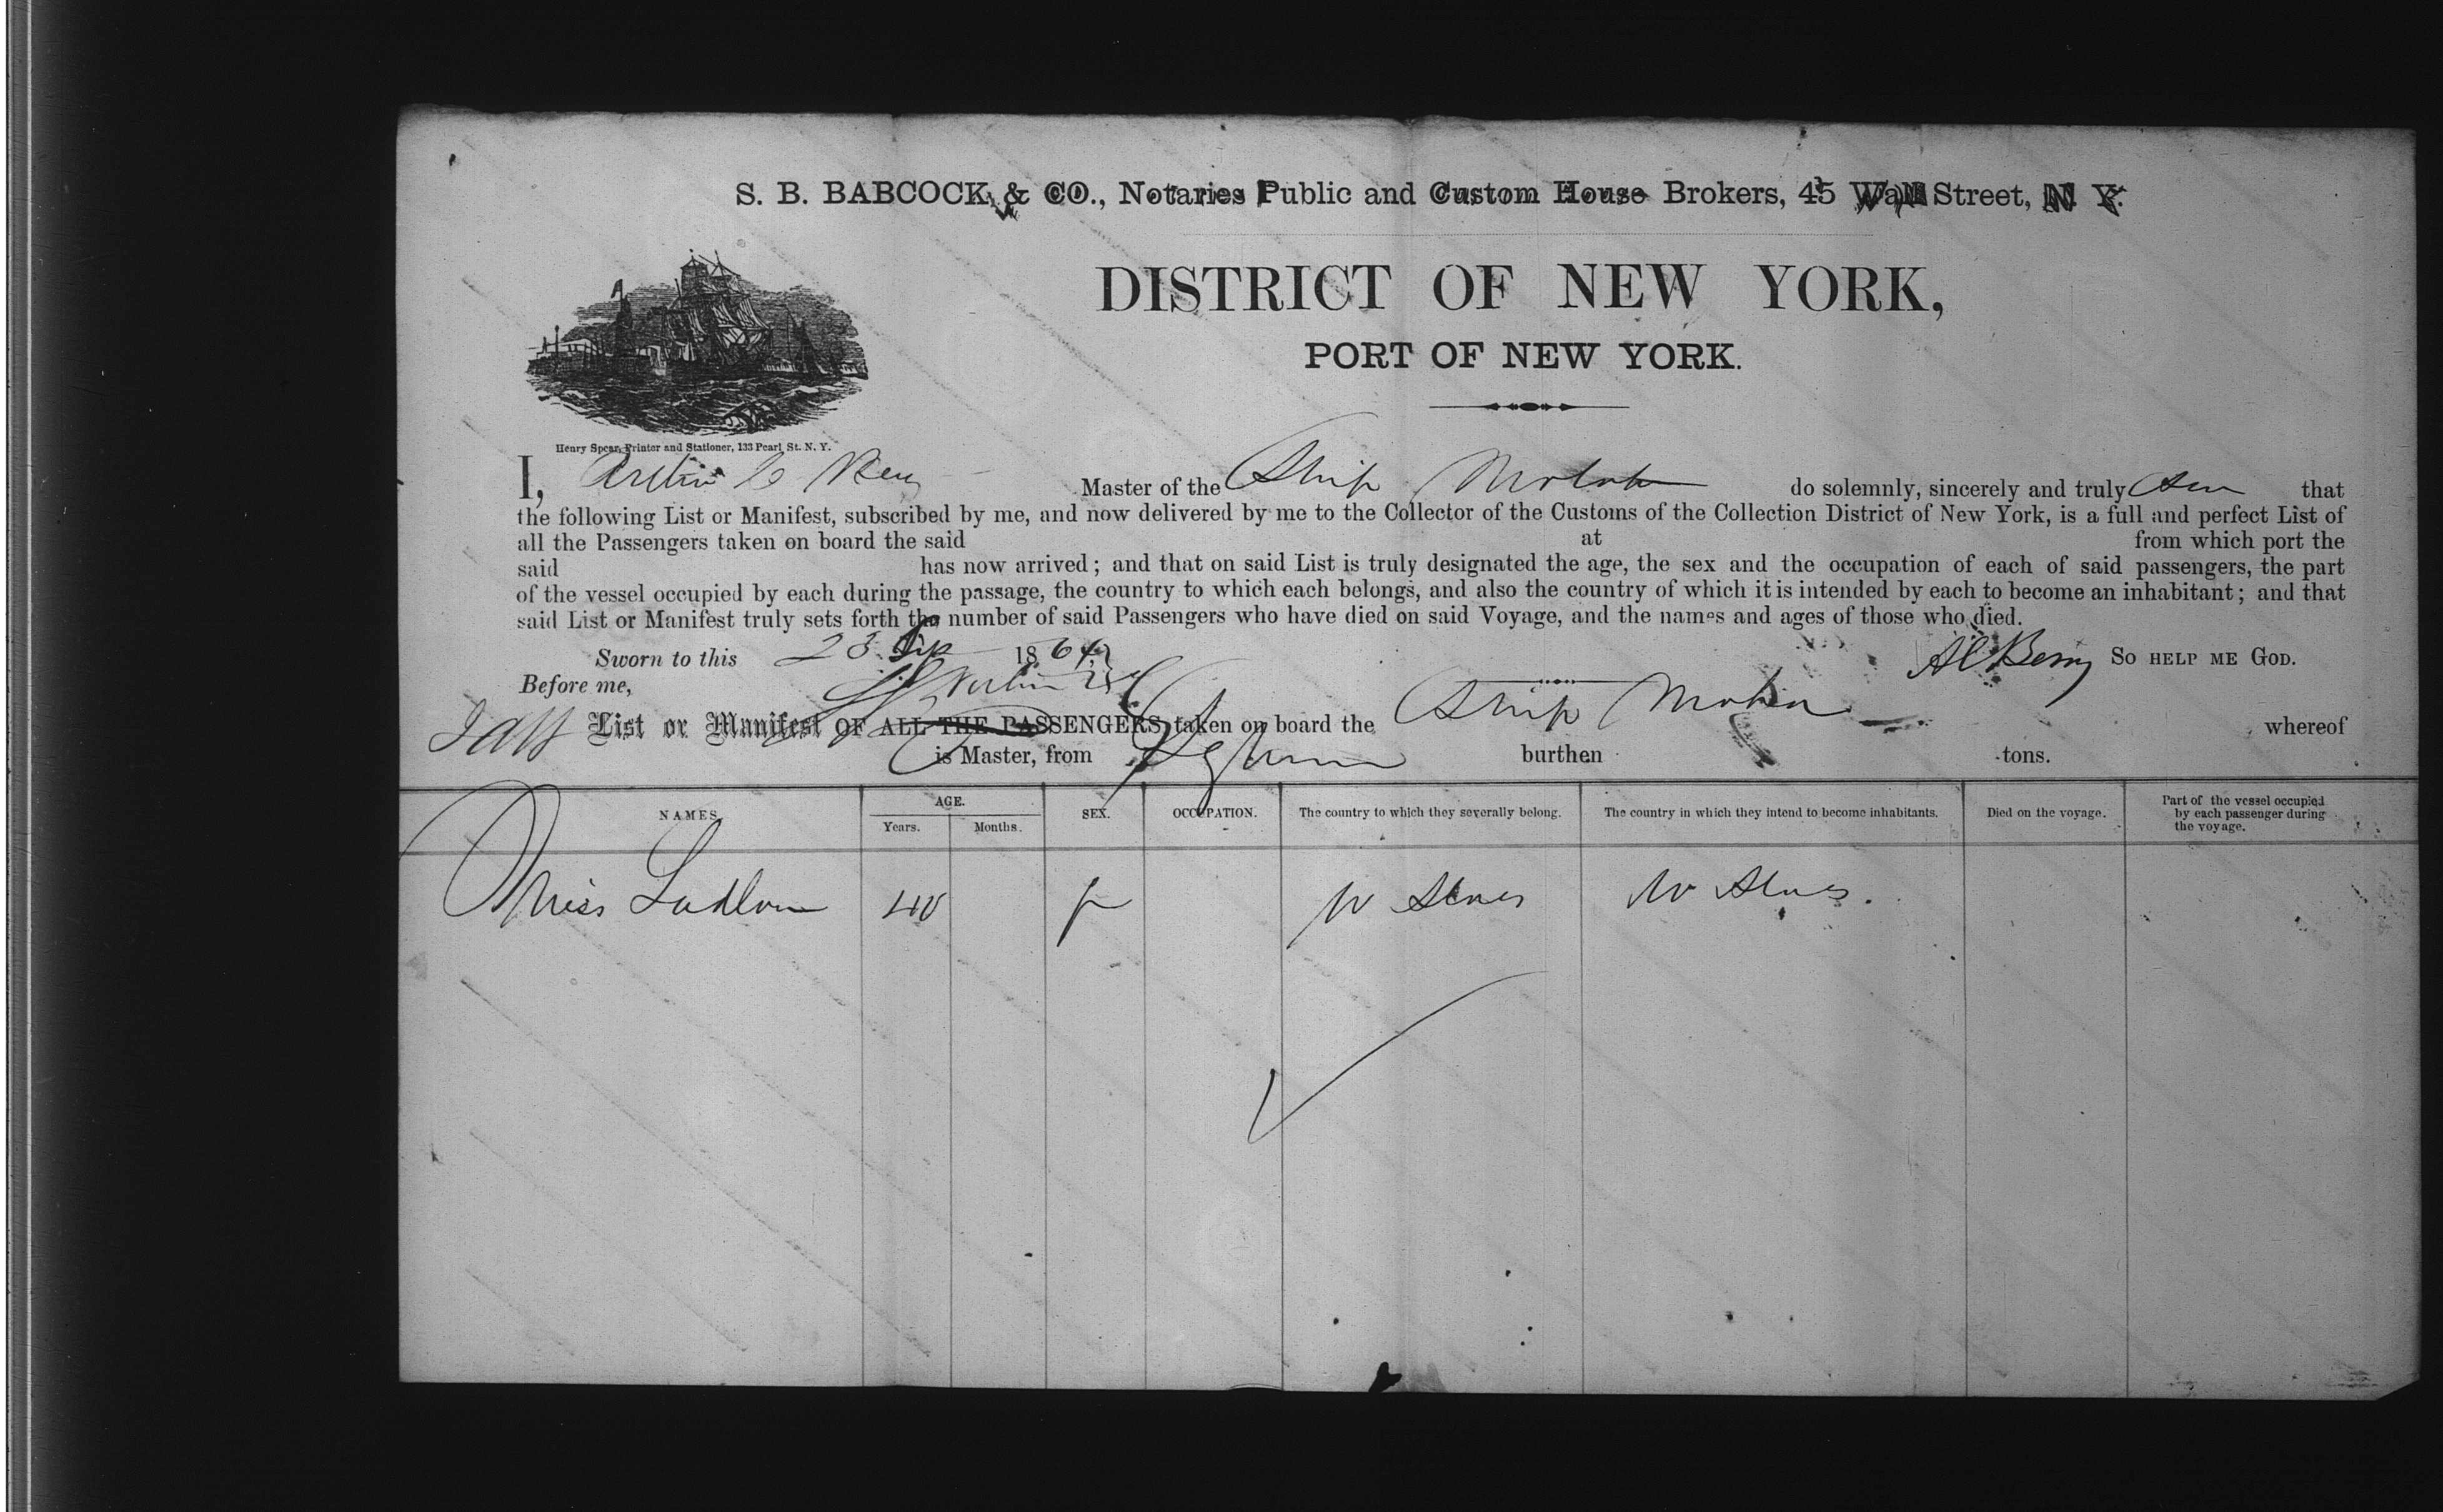 S. B. BABCOCK & CO., Notaries Public and Custom House Brokers, 45 Wall Street, N. Y.
DISTRICT OF NEW YORK,
PORT OF NEW YORK.
Henry Spear, Printer and Stationer, 133 Pearl St. N. Y.
I, Master of the Ship do solemnly, sincerely and truly that
the following List or Manifest, subscribed by me, and now delivered by me to the Collector of the Customs of the Collection District of New York, is a full and perfect List of
all the Passengers taken on board the said at from which port the
said has now arrived; and that on said List is truly designated the age, the sex and the occupation of each of said passengers, the part
of the vessel occupied by each during the passage, the country to which each belongs, and also the country of which it is intended by each to become an inhabitant; and that
said List or Manifest truly sets forth the number of said Passengers who have died on said Voyage, and the names and ages of those who died.
Sworn to this 23 Sep 1864 A C Berry SO HELP ME GOD.
Before me,
List or Manifest OF ALL THE PASSENGERS taken on board the Ship whereof
is Master, from burthen tons.
NAMES. AGE. Years. Months. SEX. OCCUPATION. The country to which they severally belong. The country in which they intend to become inhabitants. Died on the voyage. Part of the vessel occupied by each passenger during the voyage.
Miss Ludlow 40 f